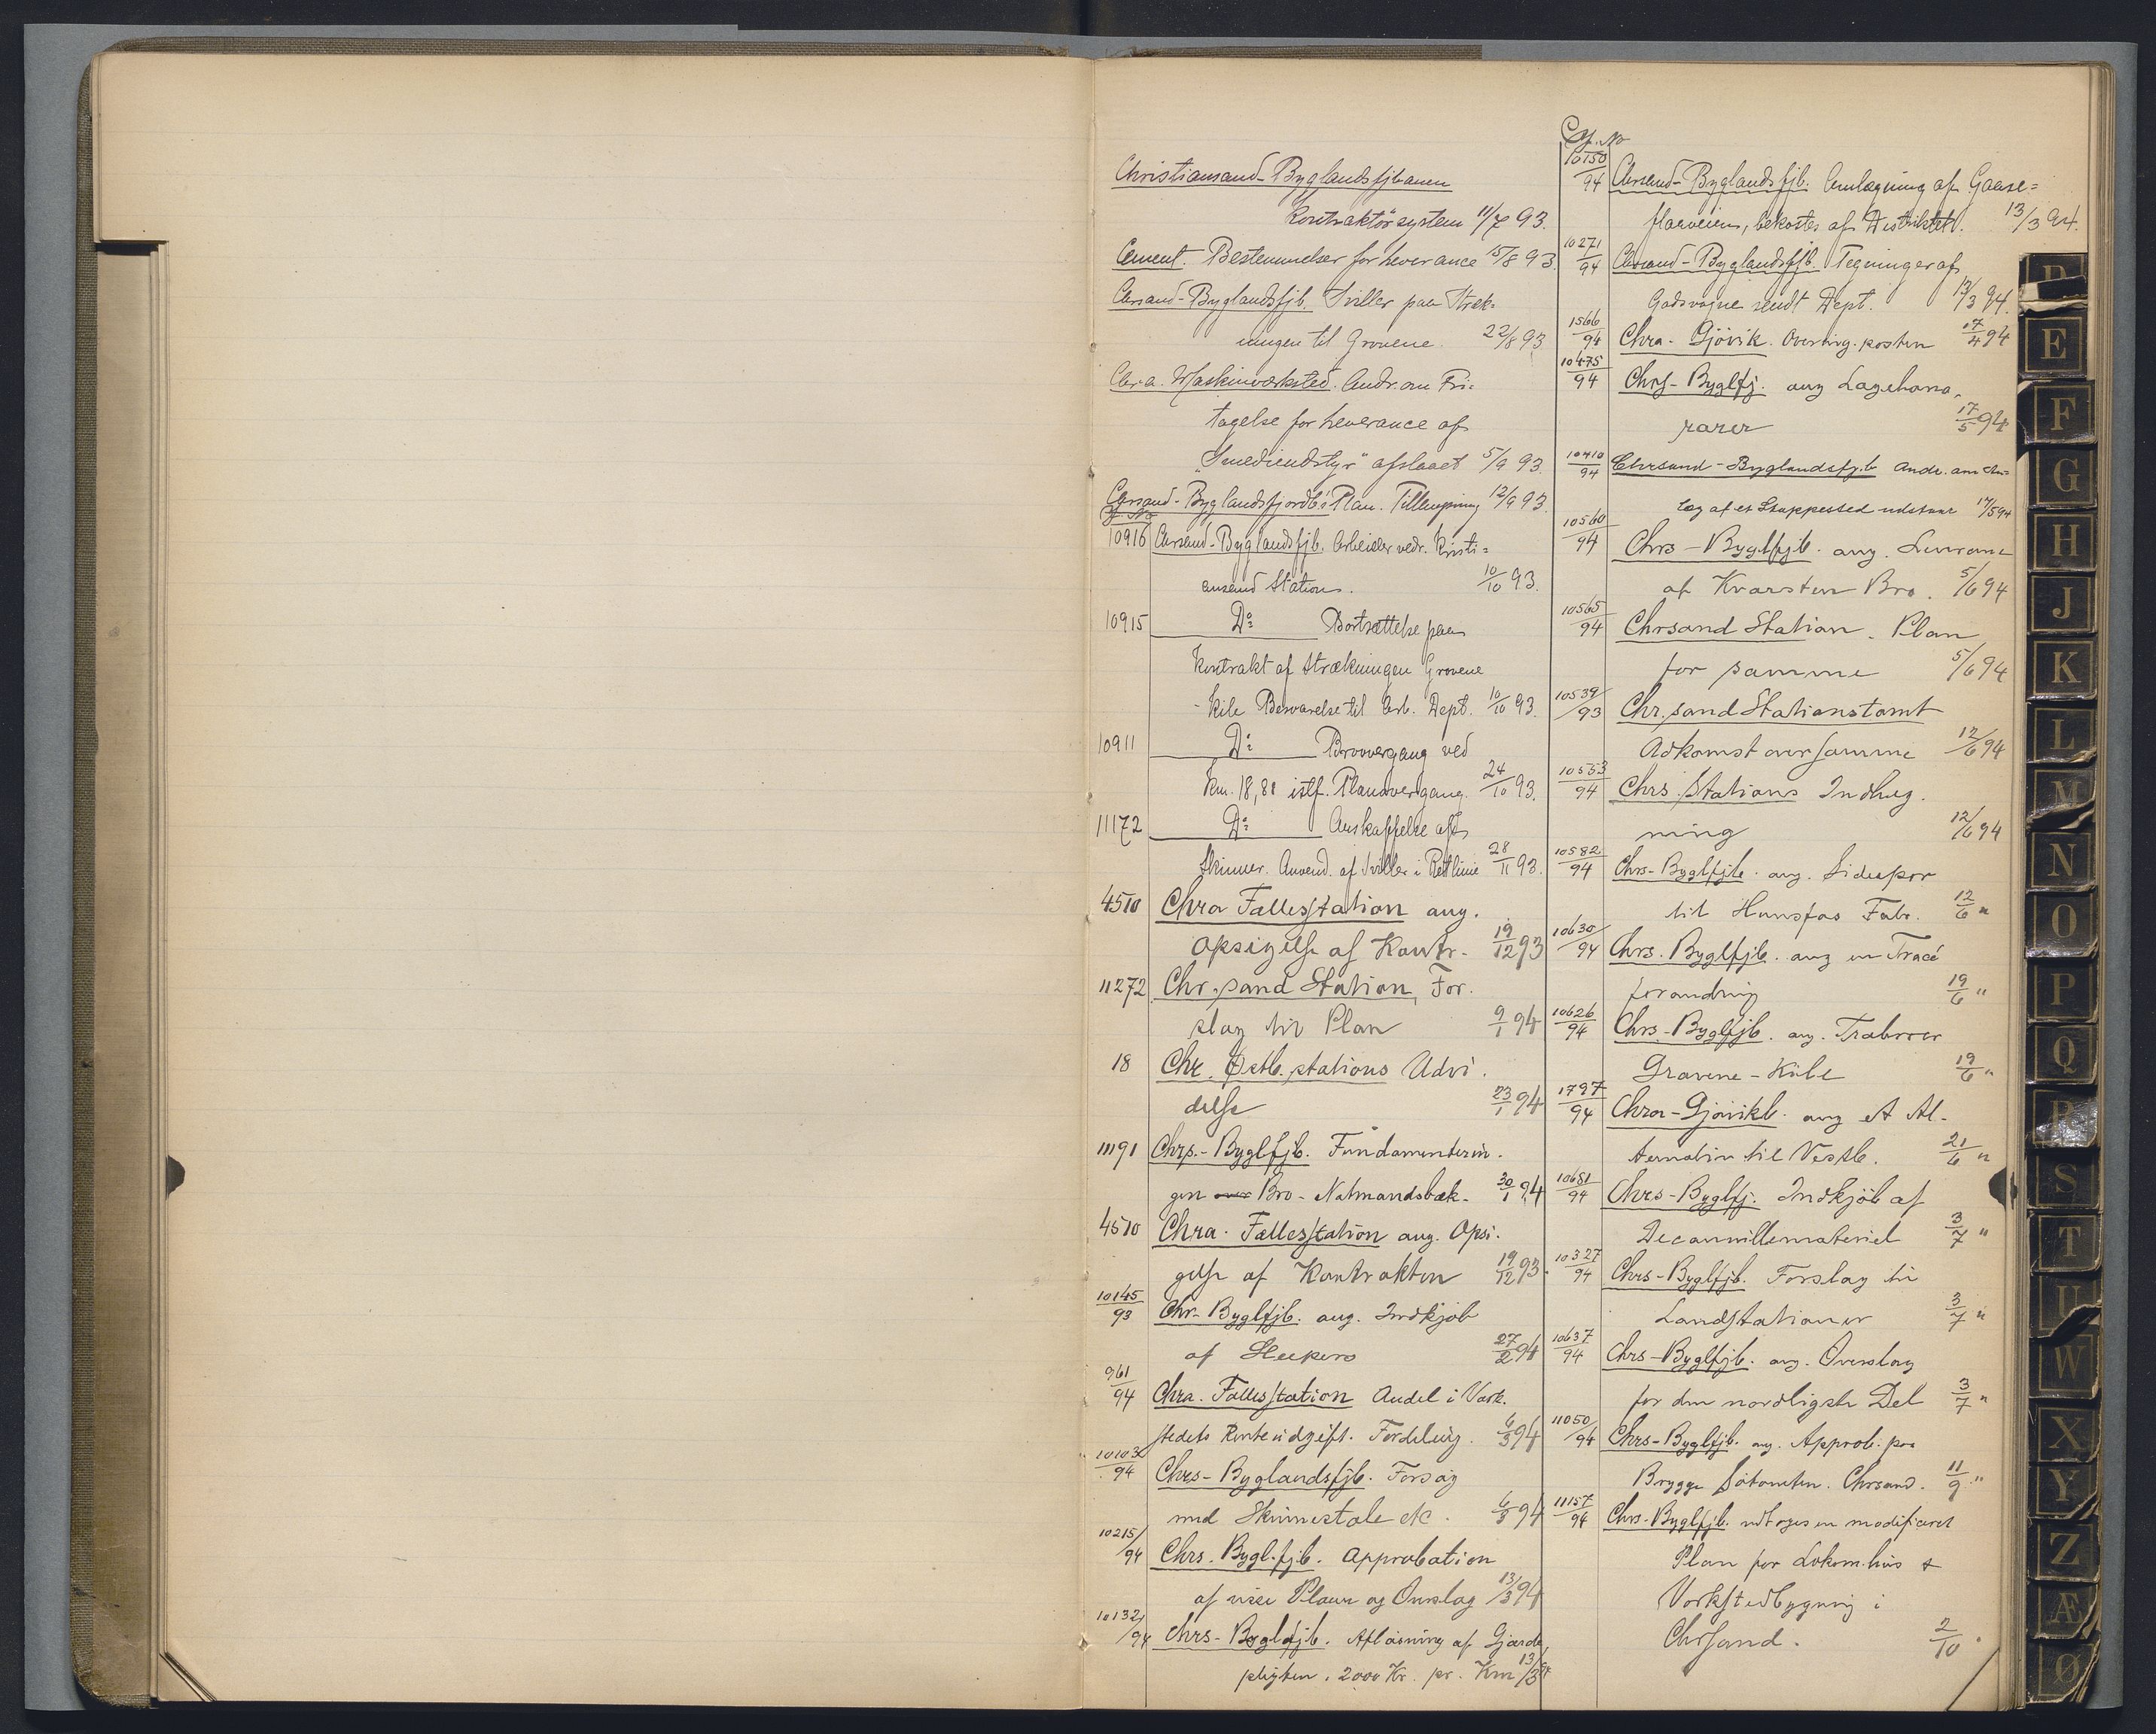 Christiansand-Byglandsfjbanen
Kontraktörsystem 11/7 93.
Cement. Bestemmelser for Leverance 15/8 93.
Chrsand-Byglandsfjb. Sviller paa Stræk-
ningen til Grovene. 22/8 93
Chr.a. Maskinværksted. Andr. om Fri-
tagelse for Leverance af
"Smedieudstyr" afslaaet 5/9 93.
Chrsand-Byglandsfjordb's Plan. Tillempning 12/9 93.
J. No
10916 Chrsand-Byglandsfjb. Arbeider vedr. Kristi-
ansand Station. 10/10 93.
10915 Do Bortsættelse paa
Kontrakt af Strækningen Grovene
-Kile Besvarelse til Arb. Dept. 10/10 93.
10911 Do Broovergang ved
Km. 18,81 istf. Planovergang. 24/10 93.
11172 Do Anskaffelse af
Skinner. Anvend. af Sviller i Retlinie 28/11 93.
4510 Chra Fællesstation ang.
Opsigelse af Kontr. 19/12 93
11272 Chr.sand Station, For-
slag til Plan 9/1 94
18 Chr. Østb. stations Udvi-
delse 23/1 94
11191 Chrs.-Byglfjb. Fundamenterin-
gen Bro - Natmandsbæk. 30/1 94
4510 Chra. Fællesstation ang. Opsi-
gelse af Kontrakten 19/12 93.
10145/93 Chr-Byglfjb. ang. Indkjøb
af Sleepers 27/2 94
961/94 Chra. Fællesstation Andel i Værk-
stedets Renteudgift. Fordeling. 6/3 94
10103/94 Chrs-Byglandsfjb. Forsøg
med Skinnestole etc. 6/3 94
10215/94 Chrs. Bygl.fjb. Approbation
af visse Planer og Overslag 13/3 94
10132/94 Chrs-Byglfjb. Afløsning af Gjærde-
pligten. 2000 Kr. pr. Km 13/3 94
C
J. No
10150/94 Chrsand-Byglandsfjb. Omlægning af Gaase-
flaaveien, bekostes af Distriktet. 13/3 94.
10271/94 Chrsand-Byglandsfjb. Tegninger af
Godsvogne sendt Dept. 13/3 94.
1566/94 Chra-Gjövik. Overing. posten 17/4 94
10475/94 Chrs-Byglfj. ang Lægehono-
rarer 17/5 94
10410/94 Chrsand-Byglandsfjb Andr. om An-
læg af et Stoppested udstaar 17/5 94
10560/94 Chrs-Byglfjb. ang. Leverance
af Kvarsten Bro. 5/6 94
10565/94 Chrsand Station. Plan
for samme 5/6 94
10539/93 Chr.sand Stationstomt
Adkomst over samme 12/6 94
10553/94 Chrs. Stations Indheg-
ning 12/6 94
10582/94 Chrs-Byglfjb. ang. Sidespor
til Hunsfos Fabr. 12/6 "
10630/94 Chrs. Byglfjb. ang en Tracé
forandring 19/6 "
10626/94 Chrs-Byglfjb. ang. Træbroer
Grovene-Kile 19/6 "
1797/94 Chra-Gjøvikb. ang et Al-
ternativ til Vestb. 21/6 "
10681/94 Chrs-Byglfj. Indkjøb af
Decauvillemateriel 3/7 "
10327/94 Chrs-Byglfjb. Forslag til
Landstationer 3/7 "
10637/94 Chrs-Byglfjb. ang. Overslag
for den nordligste Del 3/7 "
11050/94 Chrs-Byglfjb. ang. Approb. paa
Brygge Sötomten. Chrsand. 11/9 "
11157/94 Chrs-Byglfjb. udtoges en modificeret
Plan for Lokom.hus &
Værkstedbygning i
Chrsand. 2/10 "
D
E
F
G
H
J
K
L
M
N
O
P
Q
R
S
T
U
W
X
Y
Z
Æ
Ø